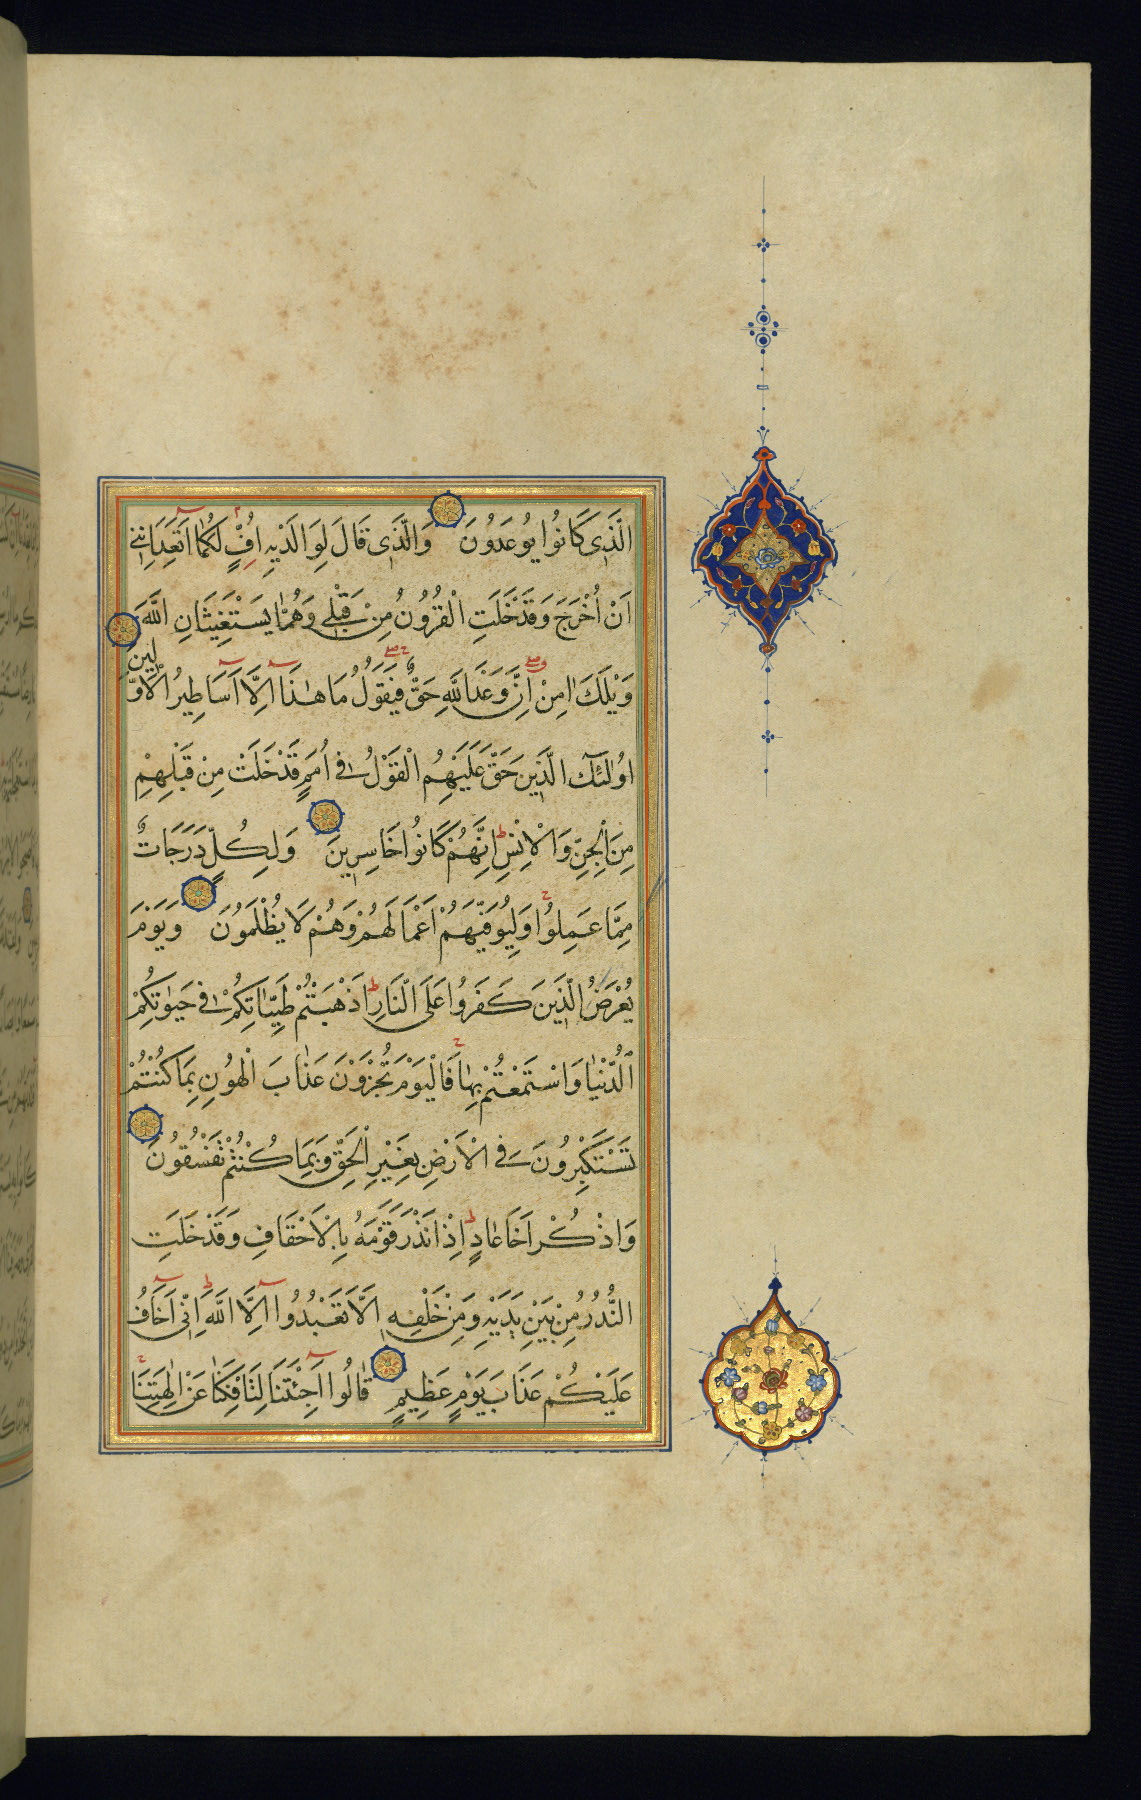 الَّذِى كَانُوا يُوعَدُونَ وَالَّذِى قَالَ لِوَالِدَيْهِ اُفٍّ لَكُمَا اَتَعِدَانِنِى
اَنْ اُخْرَجَ وَقَدْ خَلَتِ الْقُرُونُ مِنْ قَبْلِى وَهُمَا يَسْتَغِيثَانِ اللّٰهَ
وَيْلَكَ اٰمِنْ اِنَّ وَعْدَ اللّٰهِ حَقٌّ فَيَقُولُ مَا هٰذَا اِلَّا اَسَاطِيرُ الْاَوَّلِينَ
اُولٰٓئِكَ الَّذِينَ حَقَّ عَلَيْهِمُ الْقَوْلُ فِى اُمَمٍ قَدْ خَلَتْ مِنْ قَبْلِهِمْ
مِنَ الْجِنِّ وَالْاِنْسِ اِنَّهُمْ كَانُوا خَاسِرِينَ وَلِكُلٍّ دَرَجَاتٌ
مِمَّا عَمِلُوا وَلِيُوَفِّيَهُمْ اَعْمَالَهُمْ وَهُمْ لَا يُظْلَمُونَ وَيَوْمَ
يُعْرَضُ الَّذِينَ كَفَرُوا عَلَى النَّارِ اَذْهَبْتُمْ طَيِّبَاتِكُمْ فِى حَيٰوتِكُمْ
الدُّنْيَا وَاسْتَمْتَعْتُمْ بِهَا فَالْيَوْمَ تُجْزَوْنَ عَذَابَ الْهُونِ بِمَا كُنْتُمْ
تَسْتَكْبِرُونَ فِى الْاَرْضِ بِغَيْرِ الْحَقِّ وَبِمَا كُنْتُمْ تَفْسُقُونَ
وَاذْكُرْ اَخَا عَادٍ اِذْ اَنْذَرَ قَوْمَهُ بِالْاَحْقَافِ وَقَدْ خَلَتِ
النُّذُرُ مِنْ بَيْنِ يَدَيْهِ وَمِنْ خَلْفِهِ اَلَّا تَعْبُدُوا اِلَّا اللّٰهَ اِنِّى اَخَافُ
عَلَيْكُمْ عَذَابَ يَوْمٍ عَظِيمٍ قَالُوا اَجِئْتَنَا لِتَاْفِكَنَا عَنْ اٰلِهَتِنَا